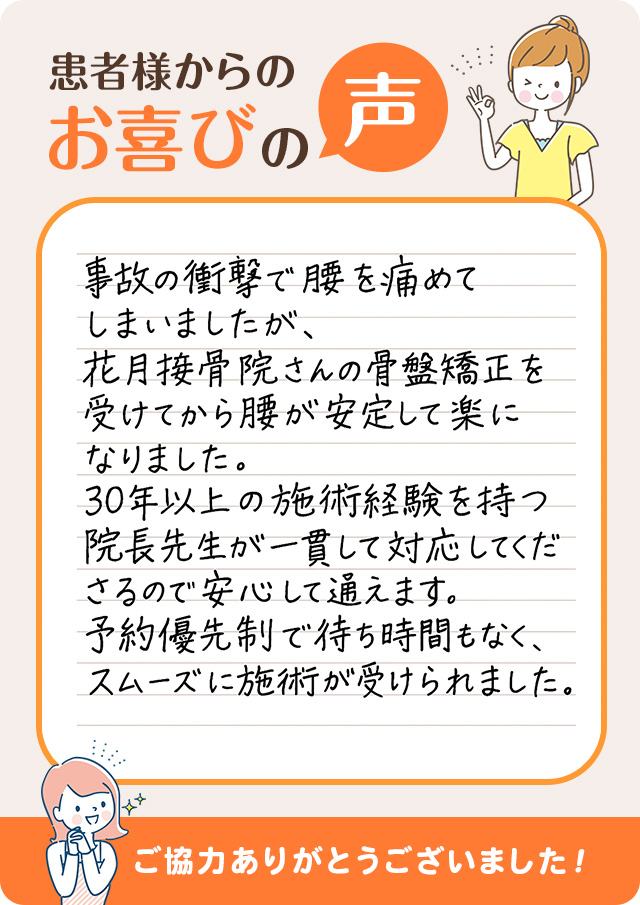 患者様からの
お喜びの声
事故の衝撃で腰を痛めて
しまいましたが、
花月接骨院さんの骨盤矯正を
受けてから腰が安定して楽に
なりました。
30年以上の施術経験を持つ
院長先生が一貫して対応してくだ
さるので安心して通えます。
予約優先制で待ち時間もなく、
スムーズに施術が受けられました。
ご協力ありがとうございました!